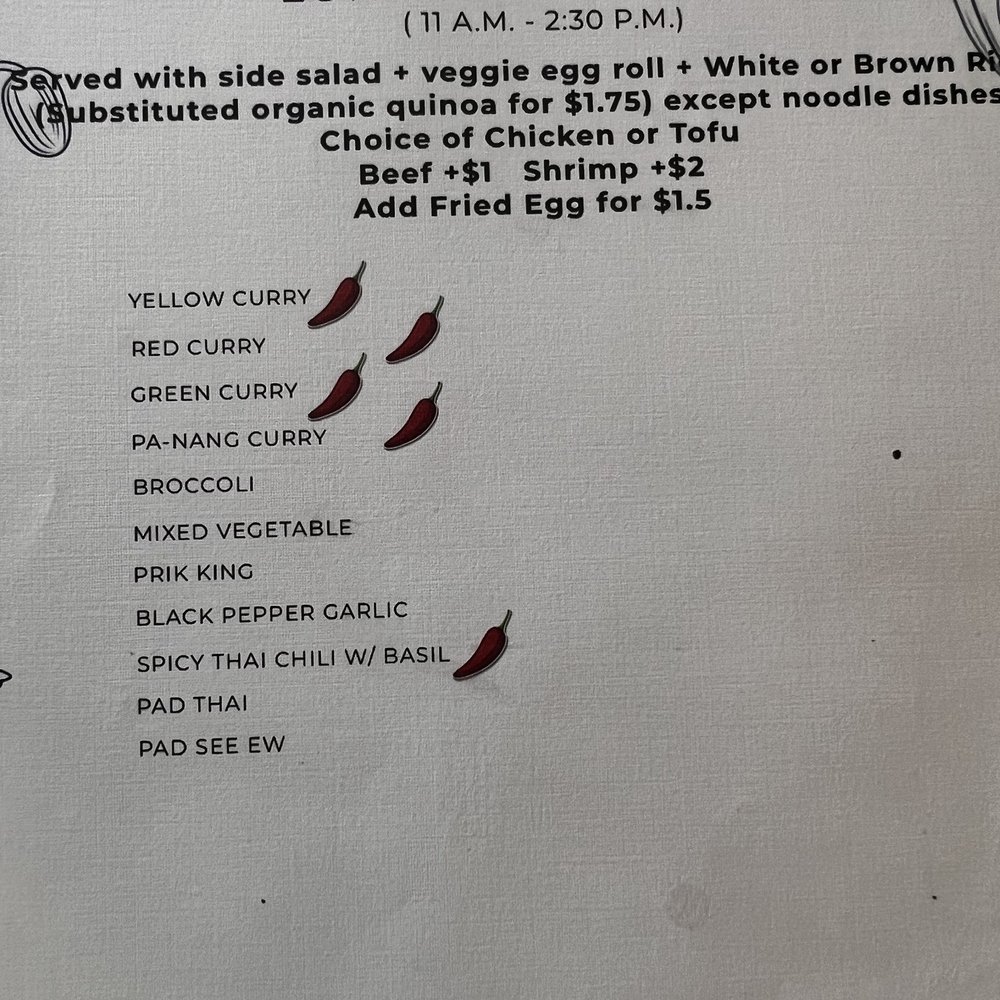 ( 11 A.M. - 2:30 P.M.)
Served with side salad + veggie egg roll + White or Brown
(Substituted organic quinoa for $1.75) except noodle dishes
Choice of Chicken or Tofu
Beef +$1 Shrimp +$2
Add Fried Egg for $1.5
YELLOW CURRY
RED CURRY
GREEN CURRY
PA-NANG CURRY
BROCCOLI
MIXED VEGETABLE
PRIK KING
BLACK PEPPER GARLIC
SPICY THAI CHILI W/ BASIL
PAD THAI
PAD SEE EW